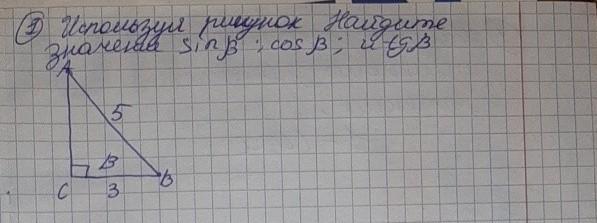 ① Используя рисунок Найдите
значения sin β ; cos β ; и tg β
A
5
B
C 3 B